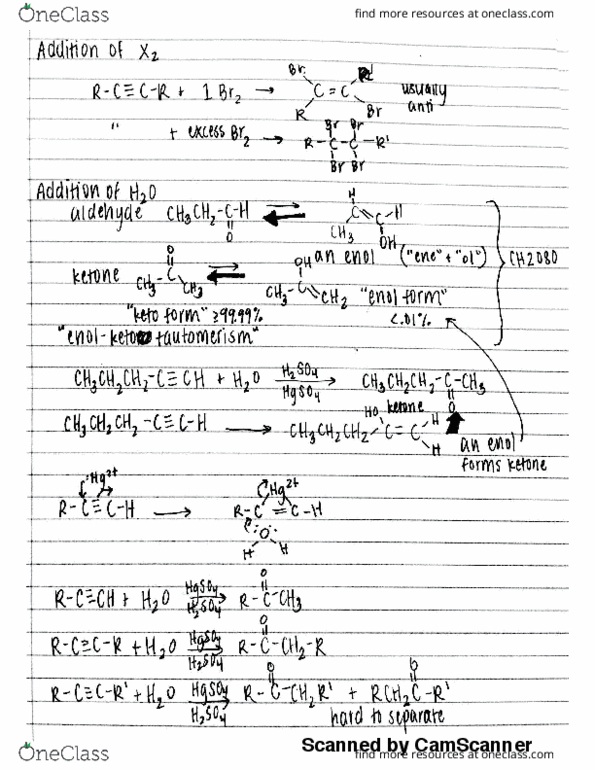 OneClass find more resources at oneclass.com
Addition of X2
R-C≡C-R + 1 Br2 → Br R' C=C R Br usually anti
" + excess Br2 → R-C-C-R' Br Br Br Br
Addition of H2O
aldehyde CH3CH2-C-H O ⇌ H C=C-H CH3 OH
an enol ("ene" + "ol")
ketone O C CH3 CH3 ⇌ OH CH3-C=CH2 "enol form"
"keto form" ≥99.99% <.01%
"enol-keto tautomerism"
CH3CH2CH2-C≡CH + H2O H2SO4 HgSO4 → CH3CH2CH2-C-CH3 O
ketone
CH3CH2CH2-C≡C-H → CH3CH2CH2 HO C=C H H
an enol
forms ketone
Hg2+ Hg2+
R-C≡C-H → R-C=C-H
:O:
H H
R-C≡CH + H2O HgSO4 H2SO4 → R-C-CH3 O
R-C≡C-R + H2O HgSO4 H2SO4 → R-C-CH2-R O
R-C≡C-R' + H2O HgSO4 H2SO4 → R-C-CH2R' O + RCH2C-R' O
hard to separate
Scanned by CamScanner
OneClass find more resources at oneclass.com